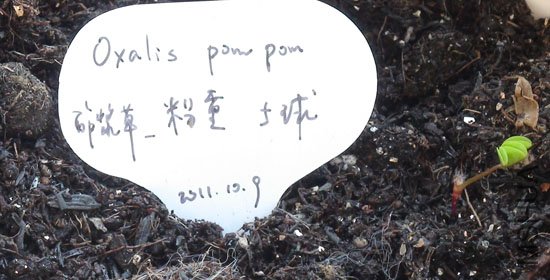 Oxalis pom pom
酢浆草_粉重 5球
2011.10.9